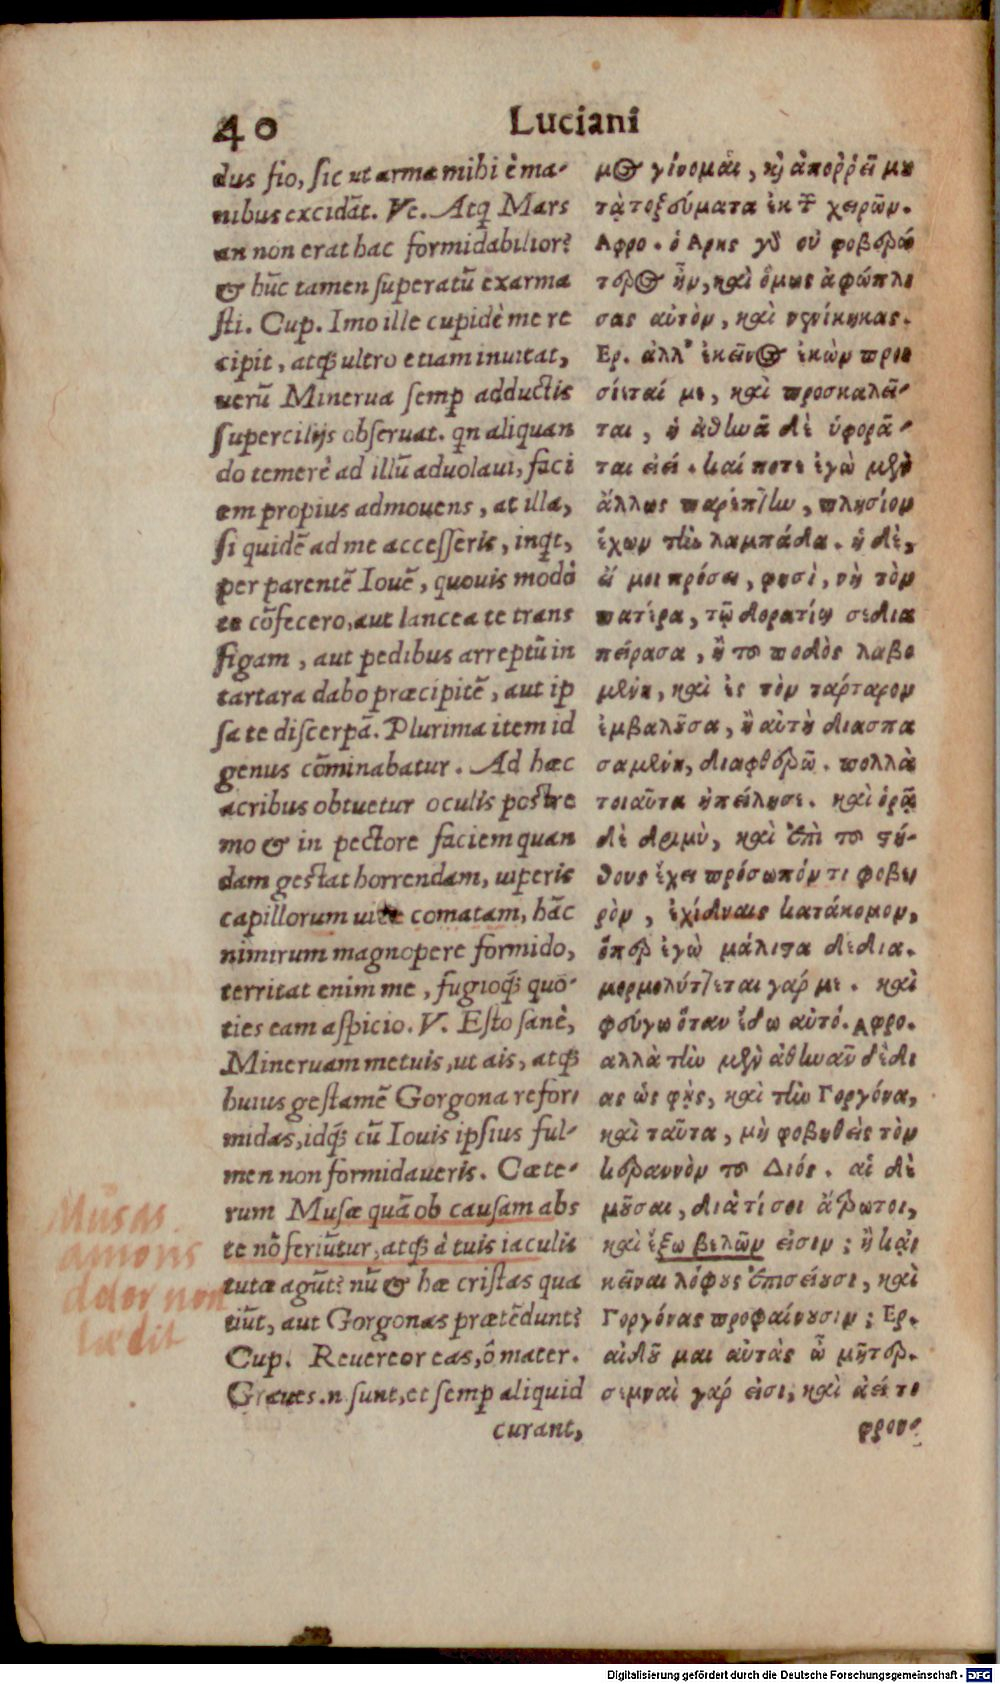 40 Luciani
dus fio, sic ut arma mihi è ma-
nibus excidāt. Ve. Atq́ Mars
an non erat hac formidabilior?
& hūc tamen superatū exarma
sti. Cup. Imo ille cupidè me re
cipit, atq́ꝫ ultro etiam inuitat,
uerū Minerua semꝑ adductis
supercilijs obseruat. qn aliquan
do temerè ad illū aduolaui, faci
em propius admouens, at illa,
si quidē ad me accesseris, inqt,
per parentē Iouē, quouis modo
te cōfecero, aut lancea te trans
figam, aut pedibus arreptū in
tartara dabo præcipitē, aut ip
sa te discerpā. Plurima item id
genus cōminabatur. Ad hæc
acribus obtuetur oculis postre
mo & in pectore faciem quan
dam gestat horrendam, uiperis
capillorum uice comatam, hāc
nimirum magnopere formido,
territat enim me, fugioq́ꝫ quo-
ties eam aspicio. V. Esto sanè,
Mineruam metuis, ut ais, atq́ꝫ
huius gestamē Gorgona refor
midas, idq́ꝫ cū Iouis ipsius ful-
men non formidaueris. Cæte-
rum Musæ quā ob causam abs
te nō feriūtur, atq́ꝫ à tuis iaculis
tutæ agūt? nū & hæ cristas qua
tiūt, aut Gorgonas prætēdunt?
Cup. Reuereor eas, ô mater.
Graues .n. sunt, et semꝑ aliquid
curant,
μος γίνομαι, καὶ ἀποῤῥεῖ μου
τὰ τοξεύματα ἐκ τ̃ χειρῶν.
Αφρο. ὁ Αρης γὸ οὐ φοβερώ
τερος ἦν, καὶ ὅμως ἀφώπλι
σας αὐτὸν, καὶ νενίκηκας.
Ερ. ἀλλ' ἐκεῖνος ἑκὼν προσ
σίεταί με, καὶ προσκαλεῖ-
ται, ἡ ἀθηνᾶ δὲ ὑφορᾶ-
ται εἰεί. καί ποτε ἐγὼ μὲν
ἄλλως παρέπτην, πλησίον
ἔχων τὴν λαμπάδα. ἡ δὲ,
εἴ μοι πρόσει, φησὶ, νὴ τὸν
πατέρα, τῷ δορατίῳ σε δια
πείρασα, ἢ τοῦ ποδὸς λαβο
μένη, καὶ ἐς τὸν τάρταρον
ἐμβαλοῦσα, ἢ αὐτὴ διασπα
σαμένη, διαφθερῶ. πολλὰ
τοιαῦτα ἠπείλησε. καὶ ὁρᾷ
δὲ δριμὺ, καὶ ἐπὶ τοῦ στή-
θους ἔχει πρόσωπόν τι φοβε
ρὸν, ἐχίδναις κατάκομον,
ὅπερ ἐγὼ μάλιστα δέδια.
μορμολύττεται γάρ με. καὶ
φεύγω ὅταν ἴδω αὐτό. Αφρο.
ἀλλὰ τὴν μὲν ἀθηνᾶν δέδι
ας ὡς φῂς, καὶ τὴν Γοργόνα,
καὶ ταῦτα, μὴ φοβηθεὶς τὸν
κεραυνὸν τοῦ Διός. αἱ δὲ
μοῦσαι, διὰ τί σοι ἄτρωτοι,
καὶ ἔξω βελῶν εἰσιν; ἢ κᾀ
κεῖναι λόφους ἐπισείουσι, καὶ
Γοργόνας προφαίνουσιν; Ερ.
αἰδοῦ μαι αὐτὰς ὦ μῆτερ.
σεμναὶ γάρ εἰσι, καὶ ἀεί τι
φρον-
Musas
amoris
dolor non
lædit
Digitalisierung gefördert durch die Deutsche Forschungsgemeinschaft - DFG